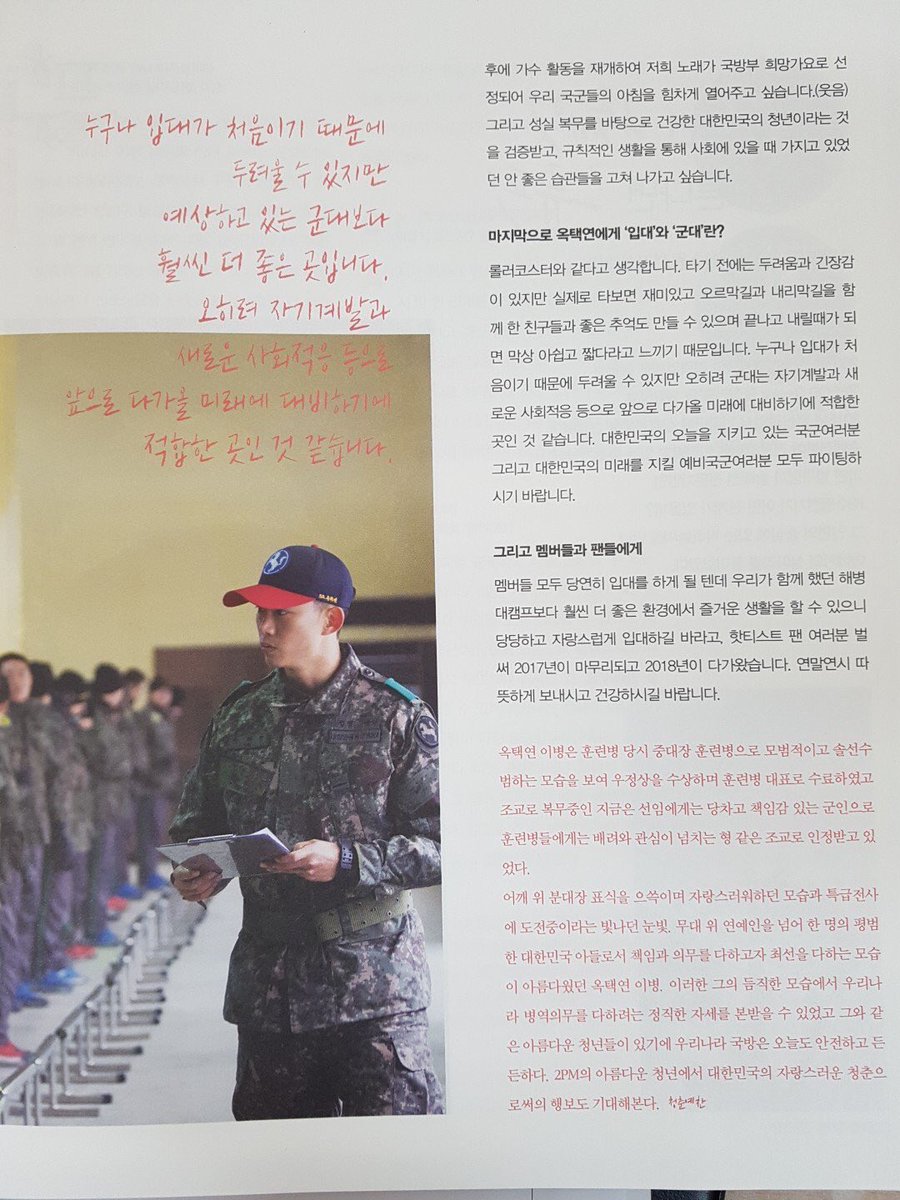 누구나 입대가 처음이기 때문에
두려울 수 있지만
예상하고 있는 군대보다
훨씬 더 좋은 곳입니다.
오히려 자기계발과
새로운 사회적응 등으로
앞으로 다가올 미래에 대비하기에
적합한 곳인 것 같습니다.
후에 가수 활동을 재개하여 저희 노래가 국방부 희망가요로 선
정되어 우리 국군들의 아침을 힘차게 열어주고 싶습니다.(웃음)
그리고 성실 복무를 바탕으로 건강한 대한민국의 청년이라는 것
을 검증받고, 규칙적인 생활을 통해 사회에 있을 때 가지고 있었
던 안 좋은 습관들을 고쳐 나가고 싶습니다.
마지막으로 옥택연에게 ‘입대’와 ‘군대’란?
롤러코스터와 같다고 생각합니다. 타기 전에는 두려움과 긴장감
이 있지만 실제로 타보면 재미있고 오르막길과 내리막길을 함
께 한 친구들과 좋은 추억도 만들 수 있으며 끝나고 내릴때가 되
면 막상 아쉽고 짧다라고 느끼기 때문입니다. 누구나 입대가 처
음이기 때문에 두려울 수 있지만 오히려 군대는 자기계발과 새
로운 사회적응 등으로 앞으로 다가올 미래에 대비하기에 적합한
곳인 것 같습니다. 대한민국의 오늘을 지키고 있는 국군여러분
그리고 대한민국의 미래를 지킬 예비국군여러분 모두 파이팅하
시기 바랍니다.
그리고 멤버들과 팬들에게
멤버들 모두 당연히 입대를 하게 될 텐데 우리가 함께 했던 해병
대캠프보다 훨씬 더 좋은 환경에서 즐거운 생활을 할 수 있으니
당당하고 자랑스럽게 입대하길 바라고, 핫티스트 팬 여러분 벌
써 2017년이 마무리되고 2018년이 다가왔습니다. 연말연시 따
뜻하게 보내시고 건강하시길 바랍니다.
옥택연 이병은 훈련병 당시 중대장 훈련병으로 모범적이고 솔선수
범하는 모습을 보여 우정상을 수상하며 훈련병 대표로 수료하였고
조교로 복무중인 지금은 선임에게는 당차고 책임감 있는 군인으로
훈련병들에게는 배려와 관심이 넘치는 형 같은 조교로 인정받고 있
었다.
어깨 위 분대장 표식을 으쓱이며 자랑스러워하던 모습과 특급전사
에 도전중이라는 빛나던 눈빛. 무대 위 연예인을 넘어 한 명의 평범
한 대한민국 아들로서 책임과 의무를 다하고자 최선을 다하는 모습
이 아름다웠던 옥택연 이병. 이러한 그의 듬직한 모습에서 우리나
라 병역의무를 다하려는 정직한 자세를 본받을 수 있었고 그와 같
은 아름다운 청년들이 있기에 우리나라 국방은 오늘도 안전하고 든
든하다. 2PM의 아름다운 청년에서 대한민국의 자랑스러운 청춘으
로써의 행보도 기대해본다. 청춘예찬